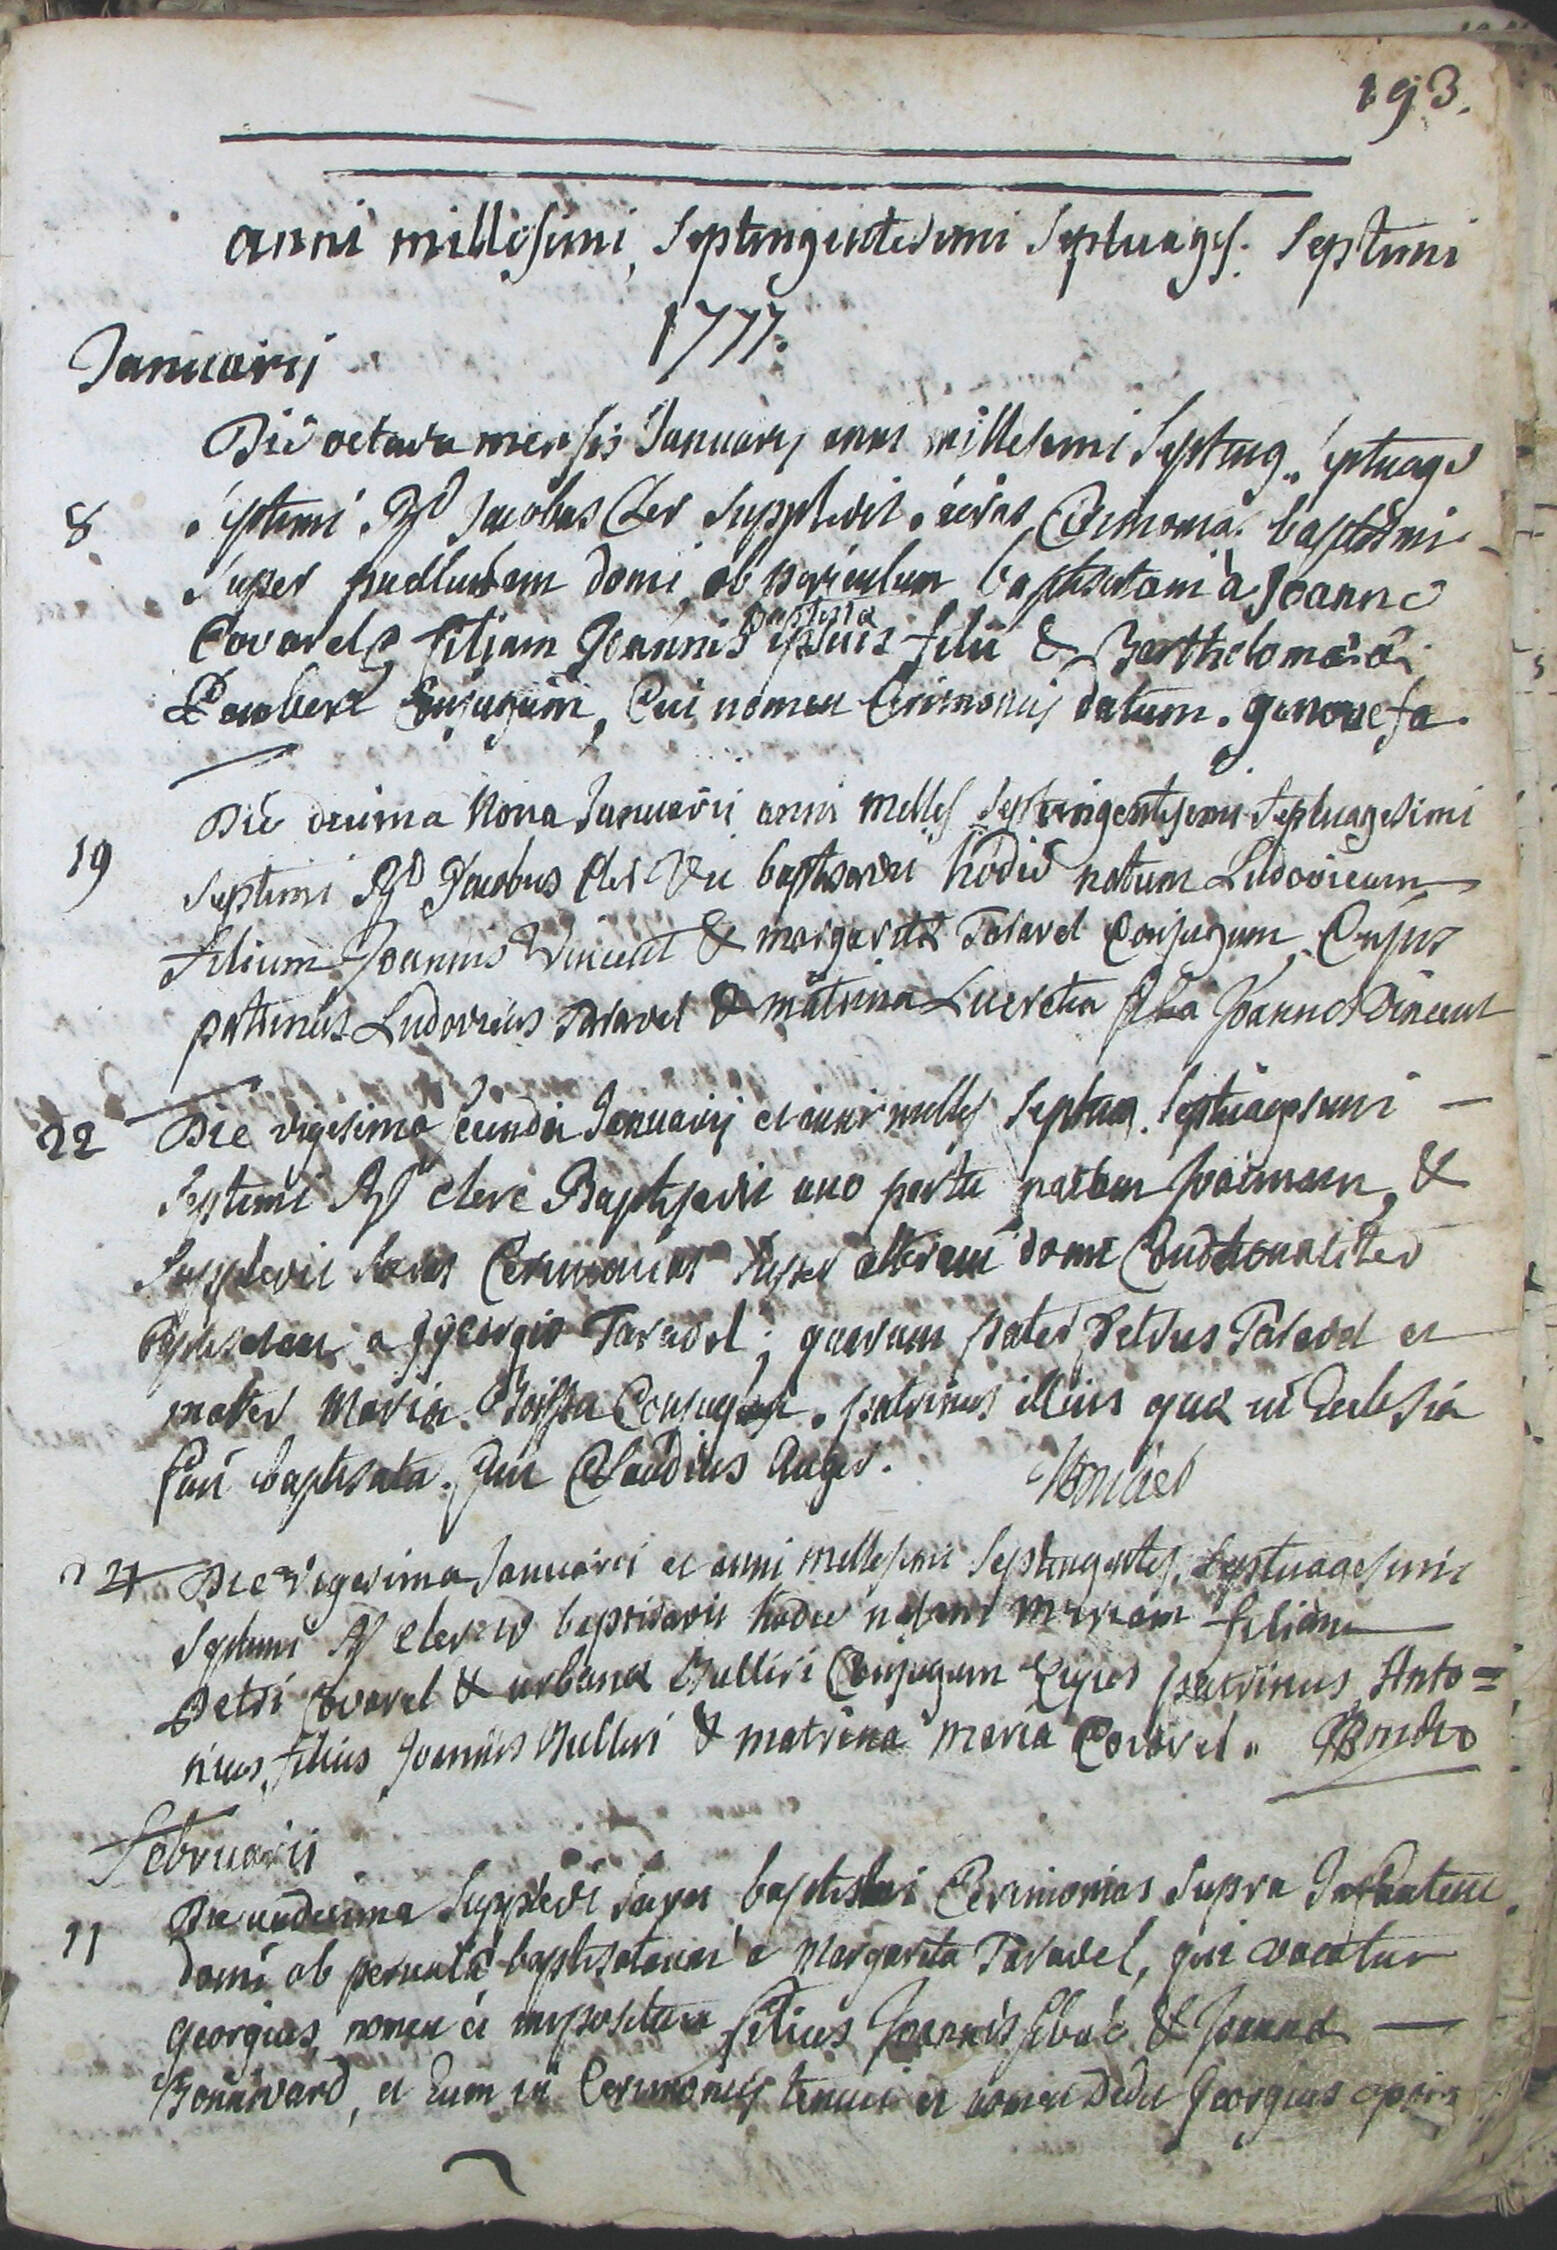 193.
anni millesimi, Septingentesimi Septuages. Septimi
1777.
Januarij
Die octava mensis Januarij anni millesimi Septing. septuage
8
septimi Rd Jacobus Cler supplevit sacras Cerimonias baptismi
super puellulam domi ob periculum baptisatam a Joanne
Covarel, filiam Joannis Baptista ipsius filii & Bartholomaea
Conjugum, Cui nomen Cerimoniis datum. genovefa.
Die decima Nona Januarii anni milles Septingentesimi Septuagesimi
19
septimi Rd Jacobus Cler baptisavi hodie natum Ludovicum
filium Joannis Vincent & margarita Taravel Conjugum, Cujus
patrinus Ludovicus Taravel & matrina Lucretia filia Joannis Vincent
22
Die vigesima secunda Januarij et anni milles Septing. Septuagesimi
septimi Rd Clere Baptisavi uno partu natam &
Supplevi sacras Cerimonias super alteram domi Conditionaliter
baptisatam a georgio Taravel; quarum pater Petrus Taravel et
mater Maria Conjuges. patrinus illius qua in Ecclesia
fuit baptisata. fuit Claudius Auger.
Die vigesima Januarii et anni millesimi Septingentes. Septuagesimi
septimi Rd baptisavi hodie natam Mariam filiam
Petri Covarel & urbana Gulliri Conjugum Cujus patrinus Anto=
nius, filius Joannis Gulliri & matrina Maria Covarel.
Februarii
11
Die undecima Supplevi sacras baptismi Cerimonias Supra Infantem
domi ob pericula baptisatum a Margarita Taravel, qui vocatur
georgius, nomen ei impositum filius Joannis & Joanna
et Eum in Cerimoniis tenuit et nomen Dedit Georgius